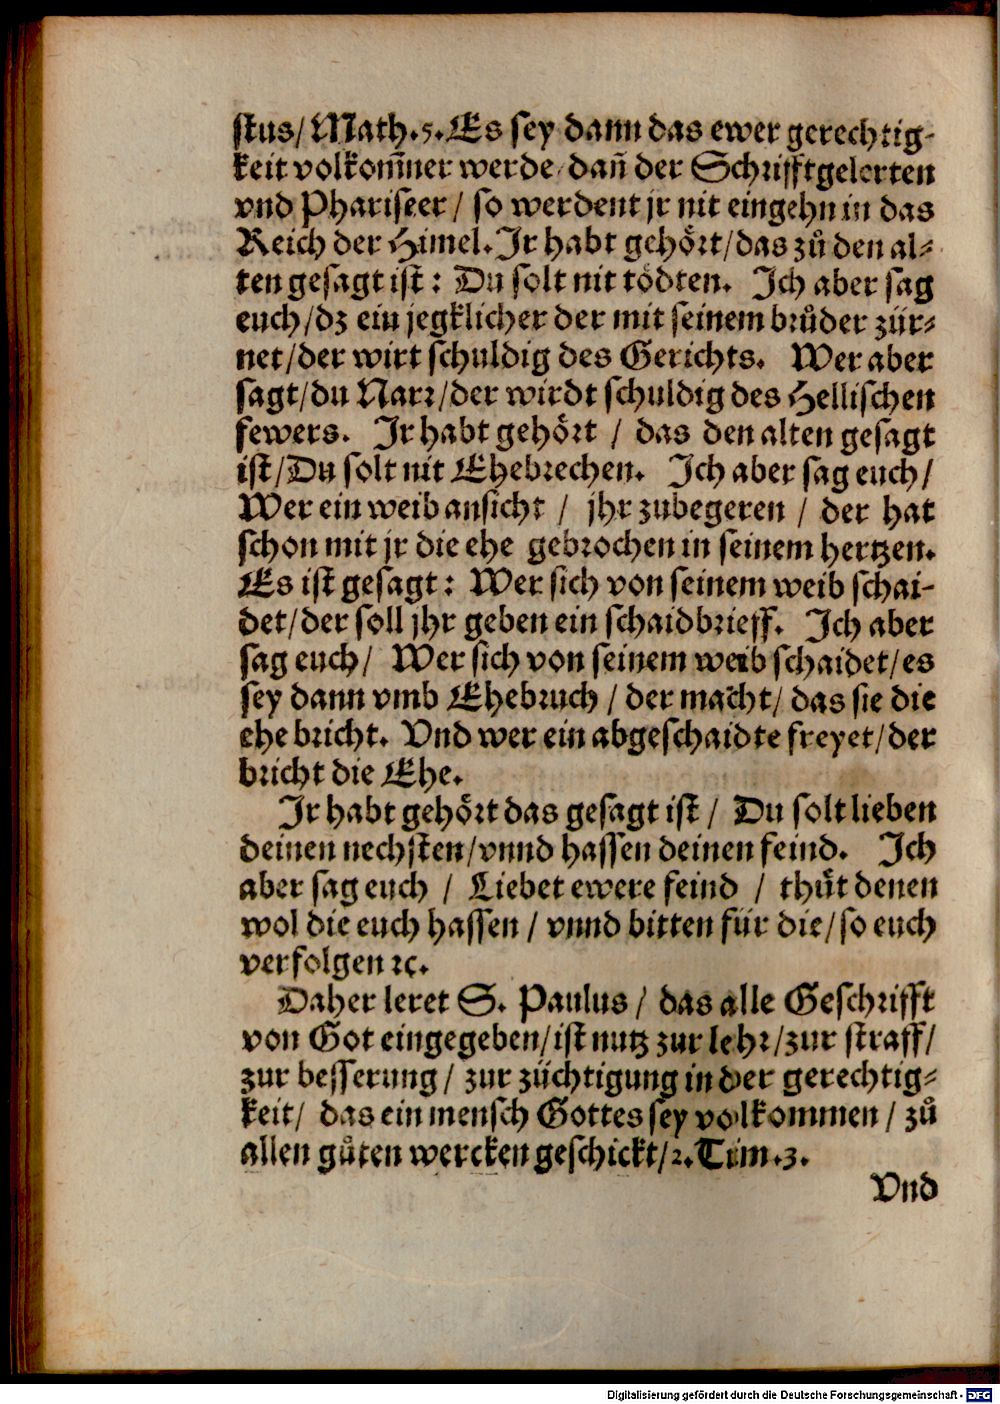 stus/ Math.5. Es sey dann das ewer gerechtig-
keit volkom̄ner werde/ dañ der Schrifftgelerten
vnd Phariseer / so werdent jr nit eingehn in das
Reich der Himel. Ir habt gehört/ das zů den al-
ten gesagt ist: Du solt nit tödten. Ich aber sag
euch/ dz ein jegklicher der mit seinem brůder zür-
net/ der wirt schuldig des Gerichts. Wer aber
sagt/ du Narr/ der wirdt schuldig des Hellischen
fewers. Ir habt gehört / das den alten gesagt
ist/ Du solt nit Ehebrechen. Ich aber sag euch/
Wer ein weib ansicht / jhr zubegeren / der hat
schon mit jr die ehe gebrochen in seinem hertzen.
Es ist gesagt: Wer sich von seinem weib schai-
det/ der soll jhr geben ein schaidbrieff. Ich aber
sag euch/ Wer sich von seinem weib schaidet/ es
sey dann vmb Ehebruch / der macht/ das sie die
ehe bricht. Vnd wer ein abgeschaidte freyet/ der
bricht die Ehe.
Ir habt gehört das gesagt ist / Du solt lieben
deinen nechsten/ vnnd hassen deinen feind. Ich
aber sag euch / Liebet ewere feind / thůt denen
wol die euch hassen / vnnd bitten für die/ so euch
verfolgen ꝛc.
Daher leret S. Paulus / das alle Geschrifft
von Got eingegeben/ ist nutz zur lehr/ zur straff/
zur besserung / zur züchtigung in der gerechtig-
keit/ das ein mensch Gottes sey volkommen / zů
allen gůten wercken geschickt/ 2. Tim. 3.
Vnd
Digitalisierung gefördert durch die Deutsche Forschungsgemeinschaft - DFG